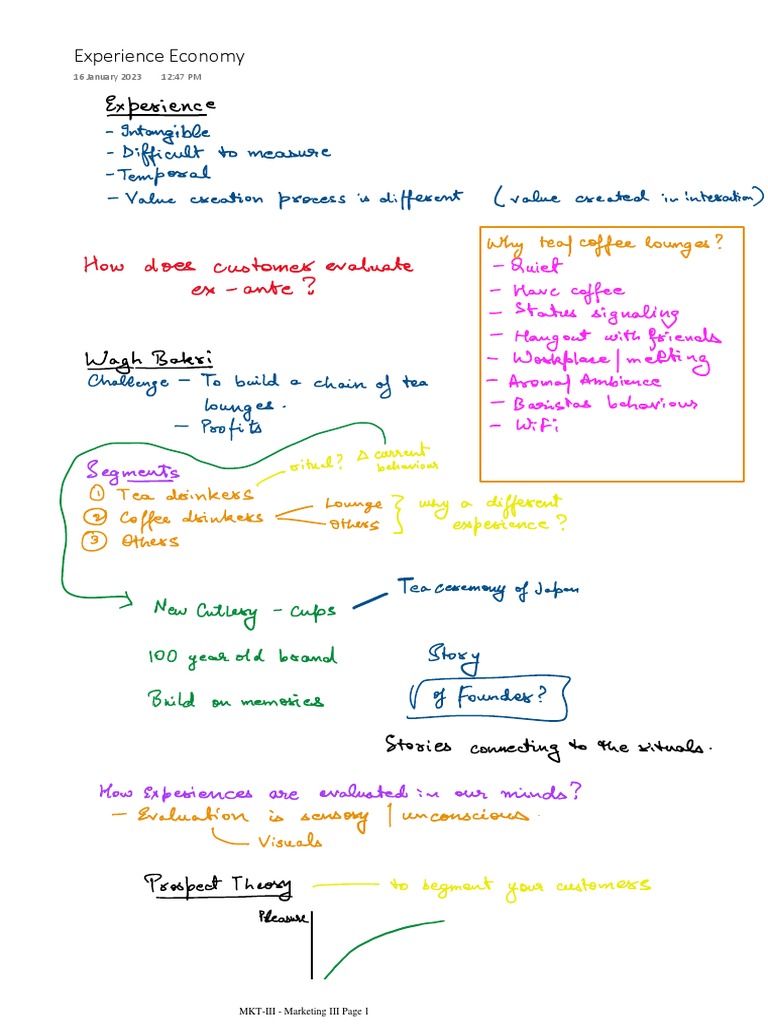 Experience Economy
16 January 2023 12:47 PM
Experience
- Intangible
- Difficult to measure
- Temporal
- Value creation process is different (value created in interaction)
How does customer evaluate
ex-ante?
Why tea/coffee lounges?
- Quiet
- Have coffee
- Status signaling
- Hangout with friends
- Workplace/meeting
- Aroma/Ambience
- Baristas behaviour
- WiFi
Wagh Bakri
Challenge - To build a chain of tea
lounges.
- Profits
Segments
ritual? Δ current
behaviour
① Tea drinkers
② Coffee drinkers
Lounge
Others
why a different
experience?
③ Others
New Cutlery - cups
Tea ceremony of Japan
100 year old brand
Story
Build on memories
of Founder?
Stories connecting to the rituals.
How Experiences are evaluated in our minds?
- Evaluation is sensory / unconscious.
Visuals
Prospect Theory
to segment your customers
Pleasure
MKT-III - Marketing III Page 1